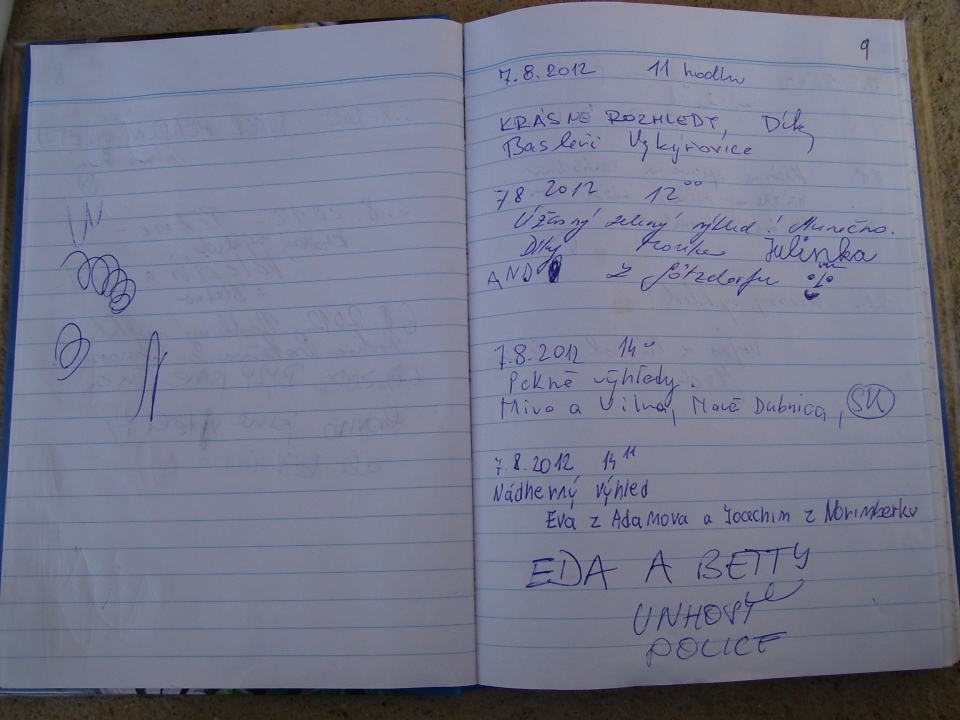 9
7.8.2012 11 hodin
KRÁSNÉ ROZHLEDY, Díky
Basleři Vykýřovice
7.8.2012 12⁰⁰
Úžasný zelený výhled!
Díky Julinka
AND z Götzdorfu
7.8.2012 14
Pekné výhľady.
Miro a Vilma, Nová Dubnica, SK
7.8.2012 14¹¹
Nádherný výhled
Eva z Adamova a Joachim z Norimberku
EDA A BETTY
POLICE